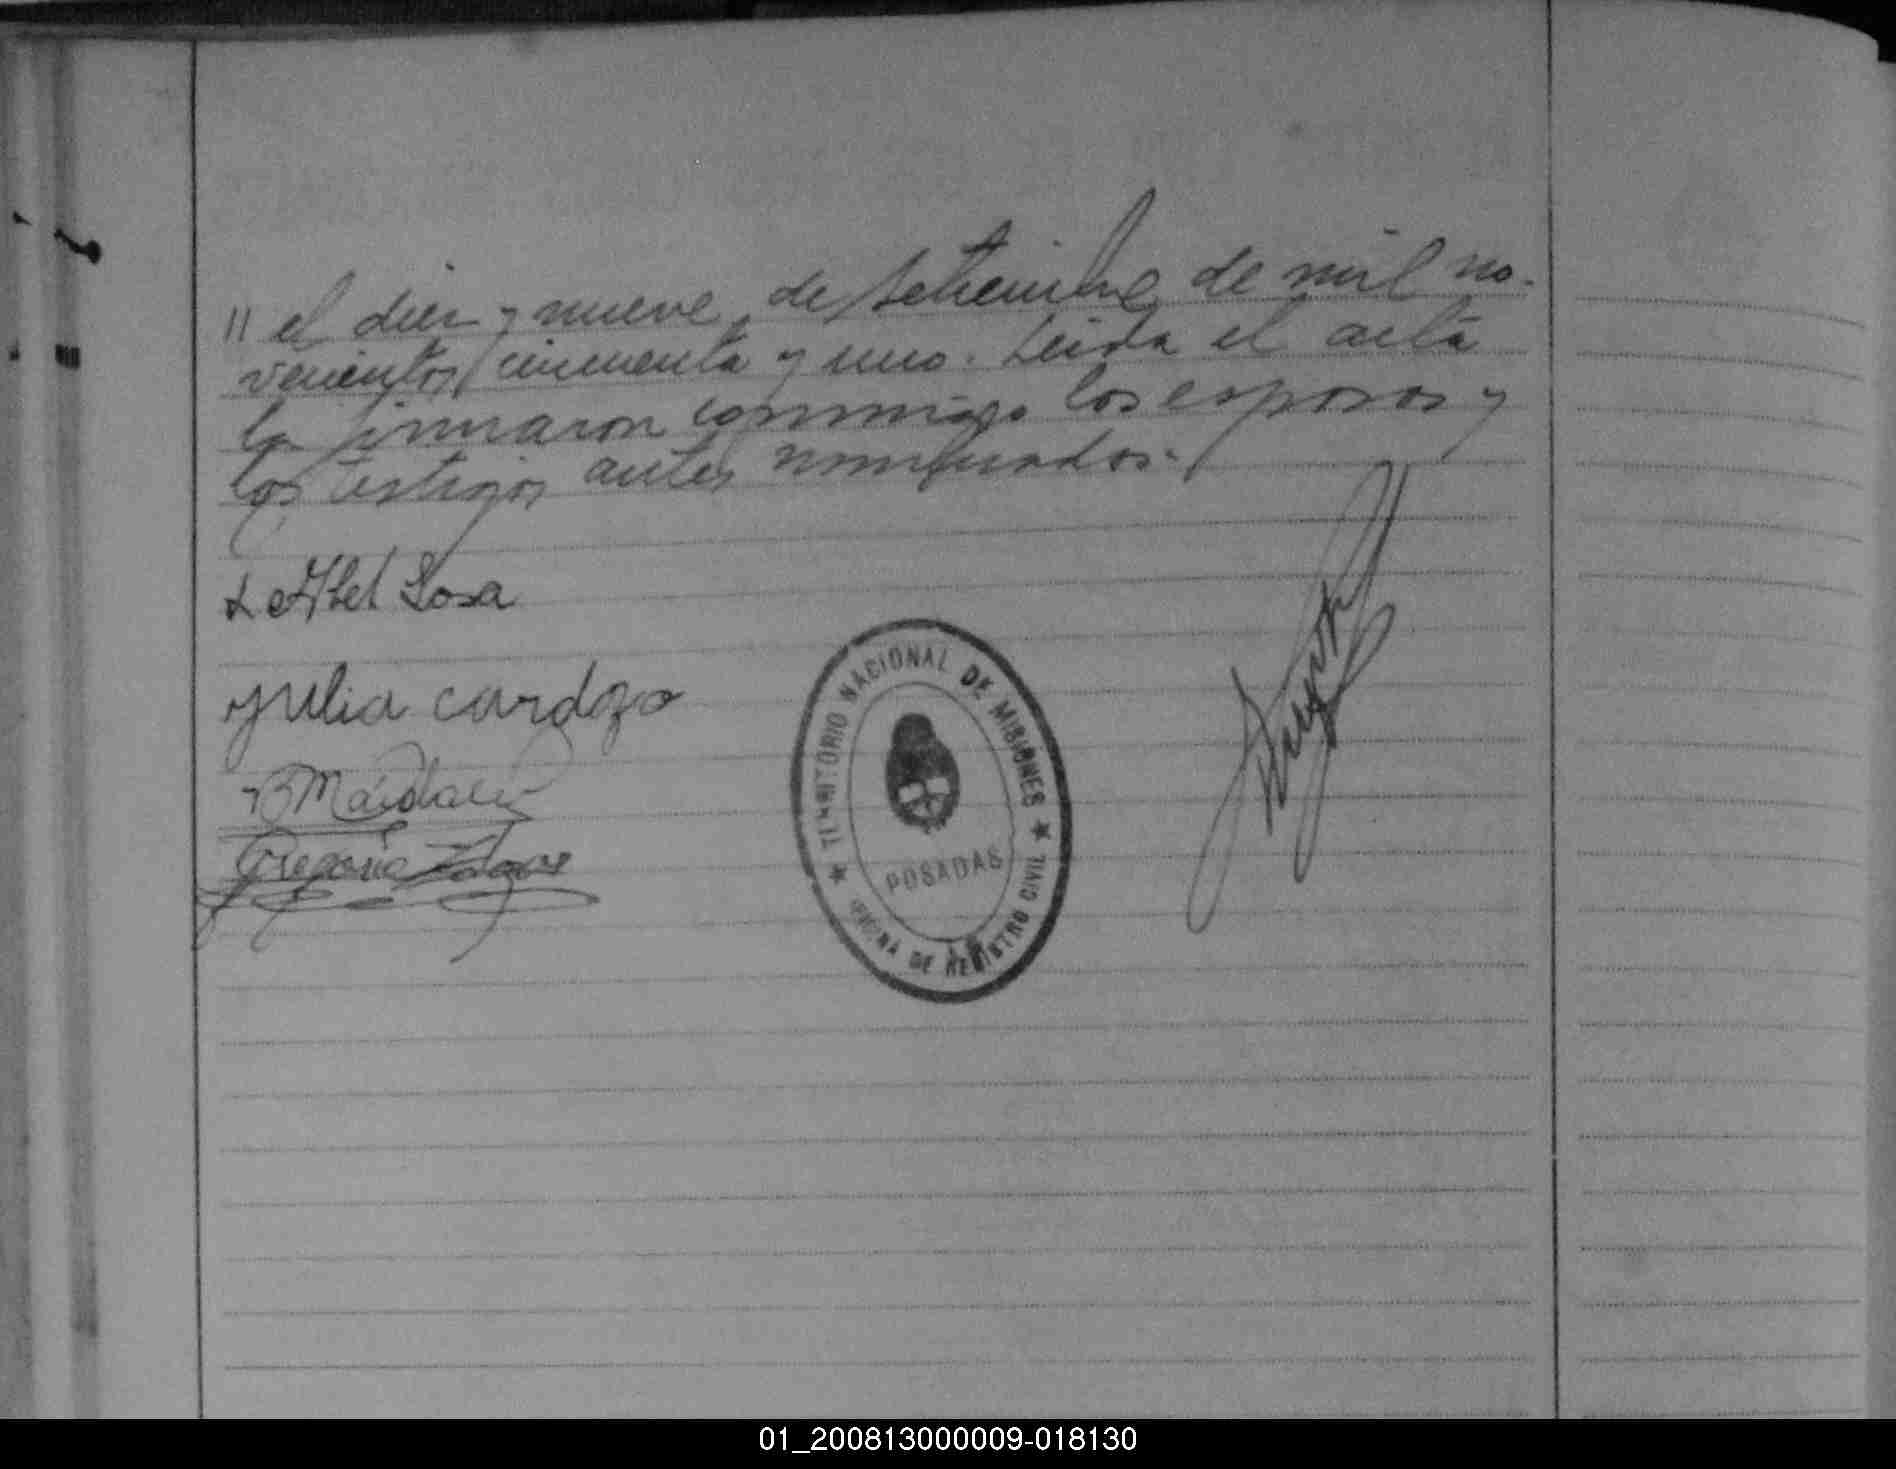 // el diez y nueve de Setiembre de mil no-
vecientos cincuenta y uno. Leída el acta
la firmaron conmigo los esposos y
los testigos antes nombrados.
Abel Sosa
Julia Cardozo
Gregorio
TERRITORIO NACIONAL DE MISIONES
POSADAS
OFICINA DE REGISTRO CIVIL
01_200813000009-018130